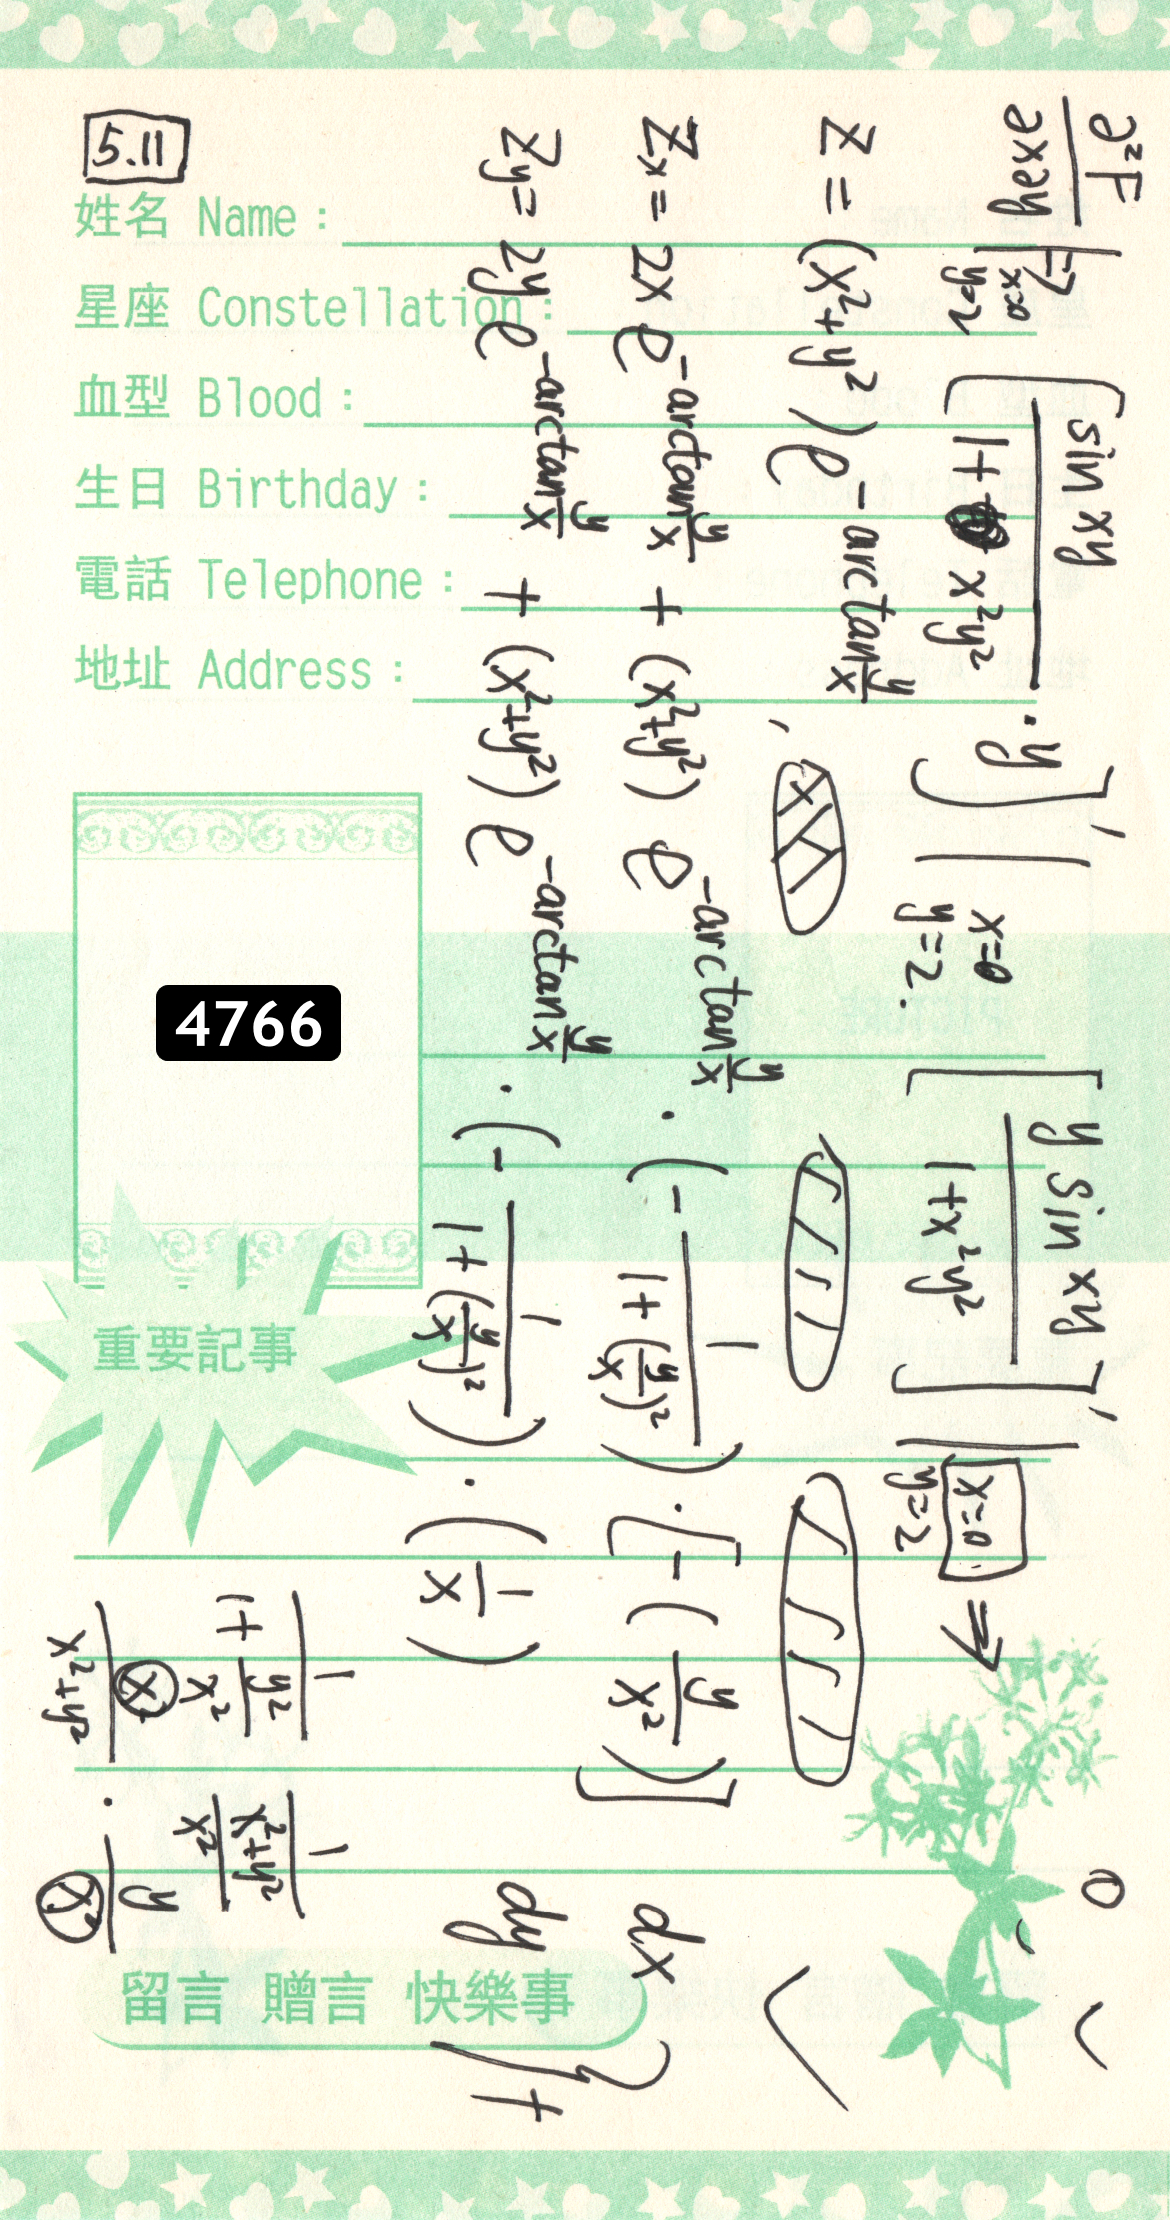 5.11
姓名 Name :
星座 Constellation :
血型 Blood :
生日 Birthday :
電話 Telephone :
地址 Address :
4766
重要記事
留言 贈言 快樂事
∂²F/∂x∂y |x=0 y=2 → [ sin xy / 1+ x²y² · y ]' | x=0 y=2. [ y sin xy / 1+x²y² ]' | x=0 y=2 ⇒ 0
Z = (x²+y²) e^-arctan y/x ,
Zx = 2x e^-arctan y/x + (x²+y²) e^-arctan y/x · (- 1/1+(y/x)²) · [-(y/x²)] dx
Zy = 2y e^-arctan y/x + (x²+y²) e^-arctan y/x · (- 1/1+(y/x)²) · (1/x) dy
1/1+ y²/x² 1/ x²+y²/x²
x²/x²+y² · y/x²